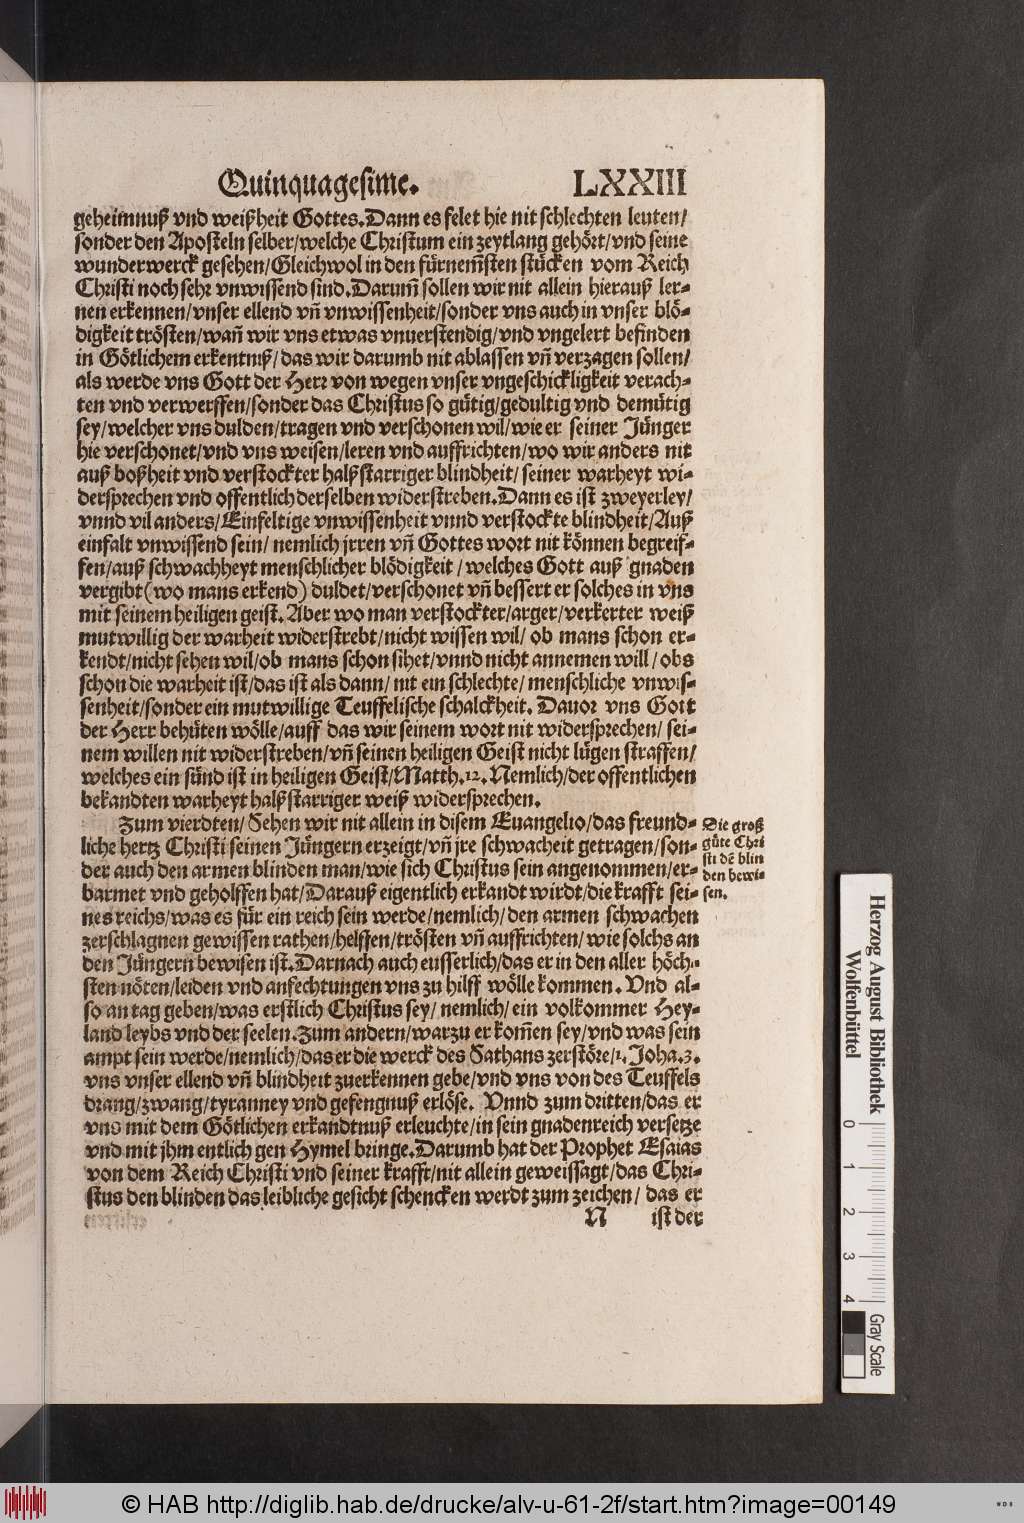 Quinquagesime. LXXIII
geheimnuß vnd weißheit Gottes. Dann es felet hie nit schlechten leuten/
sonder den Aposteln selber/welche Christum ein zeytlang gehört/vnd seine
wunderwerck gesehen/Gleichwol in den fürnem̃sten stücken vom Reich
Christi noch sehr vnwissend sind. Darum̃ sollen wir nit allein hierauß ler-
nen erkennen/vnser ellend vñ vnwissenheit/sonder vns auch in vnser blö-
digkeit trösten/wañ wir vns etwas vnuerstendig/vnd vngelert befinden
in Götlichem erkentnuß/das wir darumb nit ablassen vñ verzagen sollen/
als werde vns Gott der Herr von wegen vnser vngeschickligkeit verach-
ten vnd verwerffen/sonder das Christus so gütig/gedultig vnd demütig
sey/welcher vns dulden/tragen vnd verschonen wil/wie er seiner Jünger
hie verschonet/vnd vns weisen/leren vnd auffrichten/wo wir anders nit
auß boßheit vnd verstockter halßstarriger blindheit/seiner warheyt wi-
dersprechen vnd offentlich derselben widerstreben. Dann es ist zweyerley/
vnnd vil anders/Einfeltige vnwissenheit vnnd verstockte blindheit/Auß
einfalt vnwissend sein/nemlich jrren vñ Gottes wort nit können begreif-
fen/auß schwachheyt menschlicher blödigkeit/welches Gott auß gnaden
vergibt (wo mans erkend) duldet/verschonet vñ bessert er solches in vns
mit seinem heiligen geist. Aber wo man verstockter/arger/verkerter weiß
mutwillig der warheit widerstrebt/nicht wissen wil/ob mans schon er-
kendt/nicht sehen wil/ob mans schon sihet/vnnd nicht annemen will/obs
schon die warheit ist/das ist als dann/nit ein schlechte/menschliche vnwis-
senheit/sonder ein mutwillige Teuffelische schalckheit. Dauor vns Gott
der Herr behüten wölle/auff das wir seinem wort nit widersprechen/sei-
nem willen nit widerstreben/vñ seinen heiligen Geist nicht lügen straffen/
welches ein sünd ist in heiligen Geist/Matth.12. Nemlich/der offentlichen
bekandten warheyt halßstarriger weiß widersprechen.
Zum vierdten/Sehen wir nit allein in disem Euangelio/das freund-
liche hertz Christi seinen Jüngern erzeigt/vñ jre schwacheit getragen/son-
der auch den armen blinden man/wie sich Christus sein angenommen/er-
barmet vnd geholffen hat/Darauß eigentlich erkandt wirdt/die krafft sei-
nes reichs/was es für ein reich sein werde/nemlich/den armen schwachen
zerschlagnen gewissen rathen/helffen/trösten vñ auffrichten/wie solchs an
den Jüngern bewisen ist. Darnach auch eusserlich/das er in den aller höch-
sten nöten/leiden vnd anfechtungen vns zu hilff wölle kommen. Vnd al-
so an tag geben/was erstlich Christus sey/nemlich/ein volkommer Hey-
land leybs vnd der seelen. Zum andern/warzu er kom̃en sey/vnd was sein
ampt sein werde/nemlich/das er die werck des Sathans zerstöre/1. Joha.3.
vns vnser ellend vñ blindheit zuerkennen gebe/vnd vns von des Teuffels
drang/zwang/tyranney vnd gefengnuß erlöse. Vnnd zum dritten/das er
vns mit dem Götlichen erkandtnuß erleuchte/in sein gnadenreich versetze
vnd mit jhm entlich gen Hymel bringe. Darumb hat der Prophet Esaias
von dem Reich Christi vnd seiner krafft/nit allein geweissagt/das Chri-
stus den blinden das leibliche gesicht schencken werdt zum zeichen/das er
N ist der
Die groß
güte Chri
sti dẽ blin
den bewi-
sen.
Herzog August Bibliothek
Wolfenbüttel
0 1 2 3 4
Gray Scale
© HAB http://diglib.hab.de/drucke/alv-u-61-2f/start.htm?image=00149